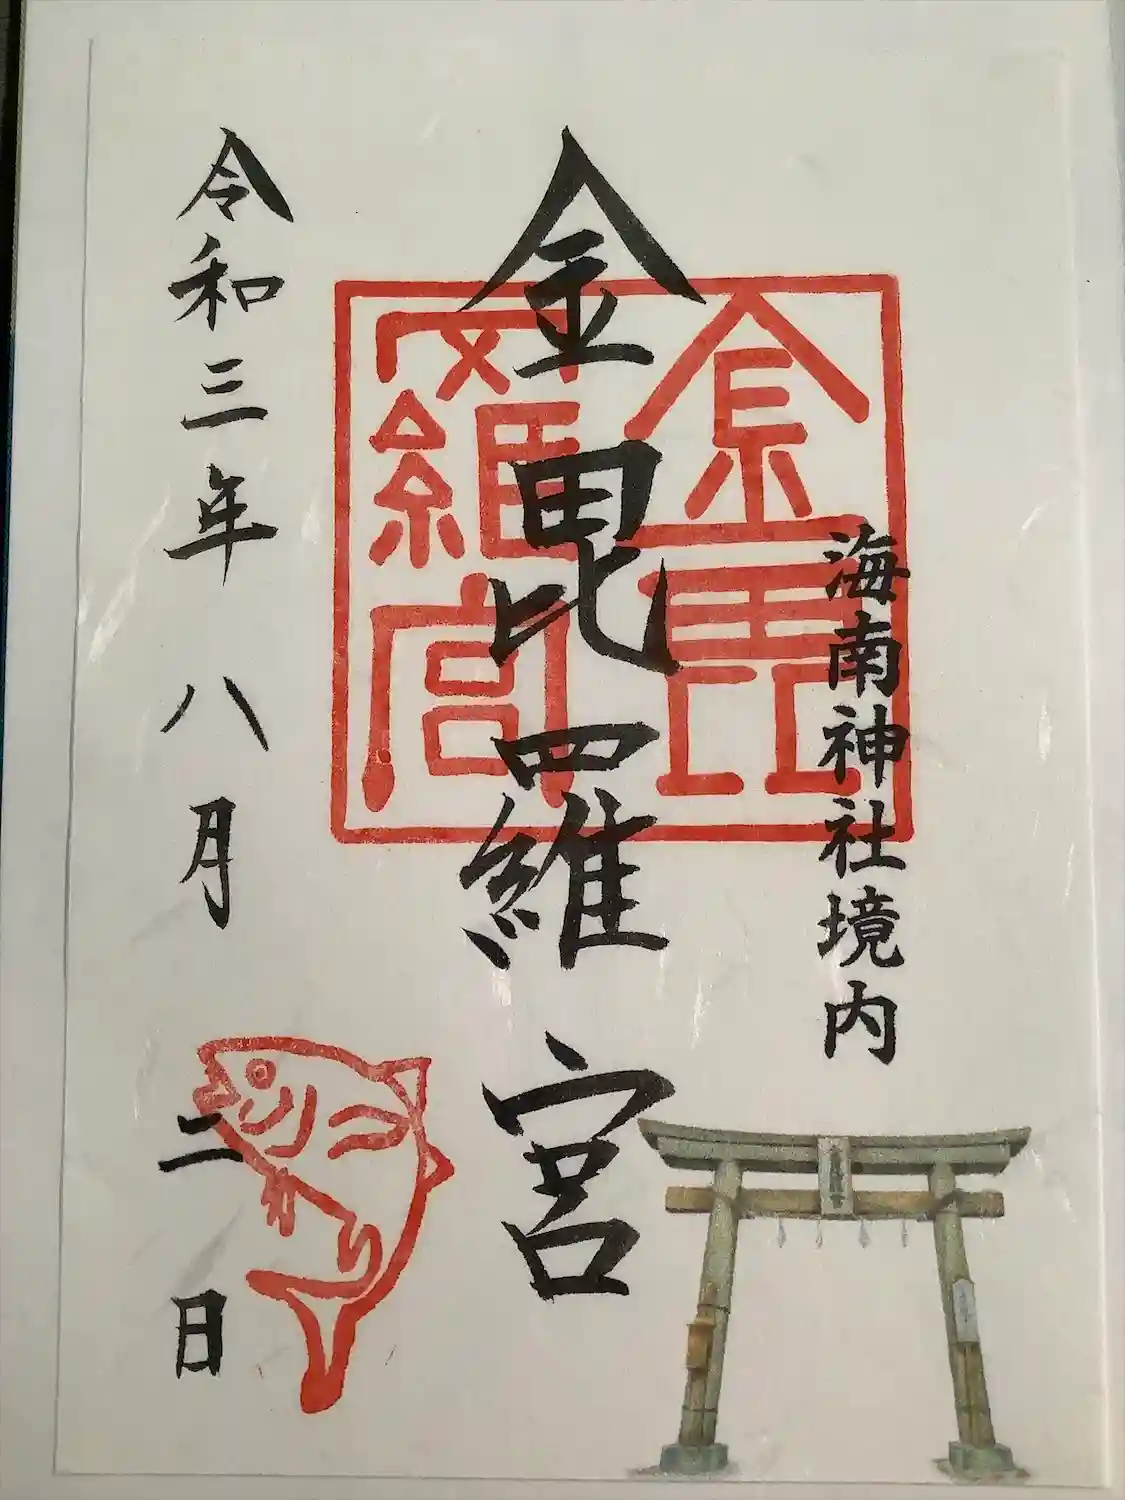 海南神社境内
金毘羅宮
金毘
羅宮
令和三年 八月 二日